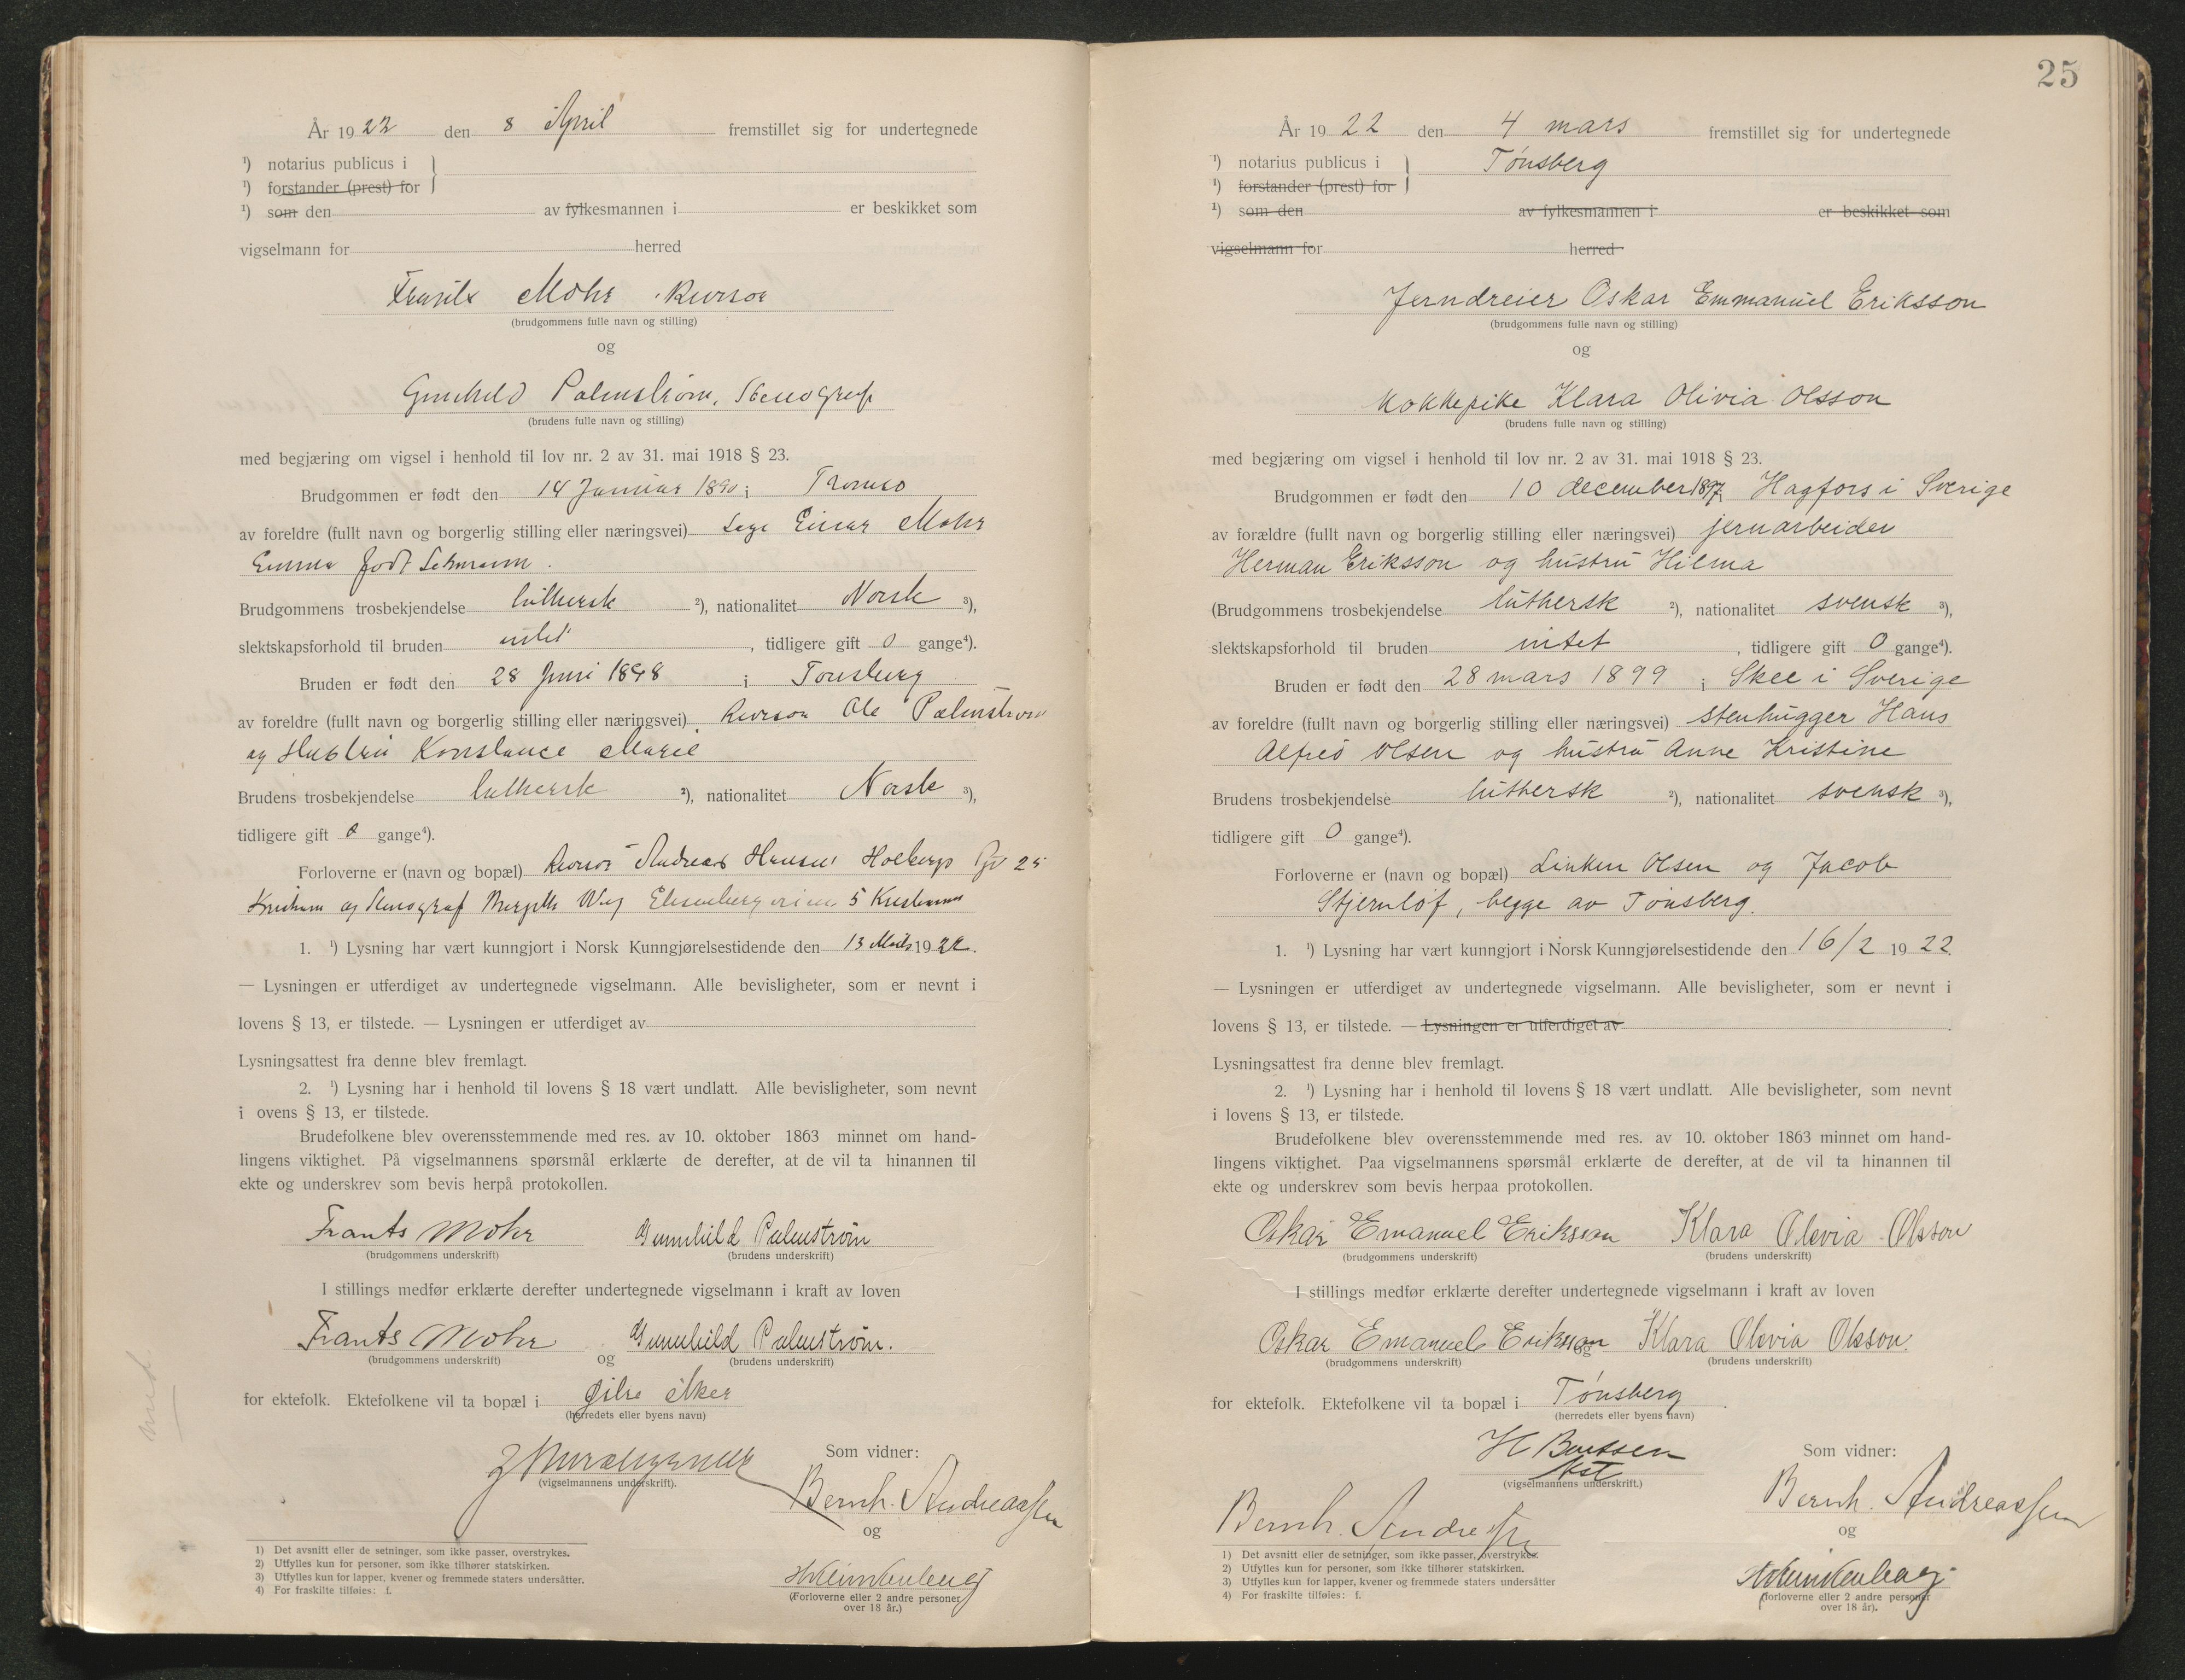 År 1922 den 8 April fremstillet sig for undertegnede
¹) notarius publicus i
¹) forstander (prest) for
¹) som den av fylkesmannen i er beskikket som
vigselmann for herred
Mohr Revisor
(brudgommens fulle navn og stilling)
og
Gunhild Palmstrøm, Stenograf
(brudens fulle navn og stilling)
med begjæring om vigsel i henhold til lov nr. 2 av 31. mai 1918 § 23.
Brudgommen er født den 14 Januar 1890 i Tromsø
av foreldre (fullt navn og borgerlig stilling eller næringsvei) Læge Einar Mohr
Emma født
Brudgommens trosbekjendelse luthersk ²), nationalitet Norsk ³),
slektskapsforhold til bruden intet, tidligere gift 0 gange⁴).
Bruden er født den 28 Juni 1898 i Tønsberg
av foreldre (fullt navn og borgerlig stilling eller næringsvei) Revisor Ole Palmstrøm
og Hustru Konstance Marie
Brudens trosbekjendelse luthersk ²), nationalitet Norsk ³),
tidligere gift 0 gange⁴).
Forloverne er (navn og bopæl) Revisor Andreas Hansen Holbergs Pl 25
og Stenograf 5 Kristiania
1. ¹) Lysning har vært kunngjort i Norsk Kunngjørelsestidende den 13 Mars 1922.
— Lysningen er utferdiget av undertegnede vigselmann. Alle bevisligheter, som er nevnt i
lovens § 13, er tilstede. — Lysningen er utferdiget av
Lysningsattest fra denne blev fremlagt.
2. ¹) Lysning har i henhold til lovens § 18 vært undlatt. Alle bevisligheter, som nevnt
i ovens § 13, er tilstede.
Brudefolkene blev overensstemmende med res. av 10. oktober 1863 minnet om hand-
lingens viktighet. På vigselmannens spørsmål erklærte de derefter, at de vil ta hinannen til
ekte og underskrev som bevis herpå protokollen.
Frants Mohr Gunnhild Palmstrøm
(brudgommens underskrift) (brudens underskrift)
I stillings medfør erklærte derefter undertegnede vigselmann i kraft av loven
Frants Mohr og Gunnhild Palmstrøm.
(brudgommens underskrift) (brudens underskrift)
for ektefolk. Ektefolkene vil ta bopæl i Østre Aker
(herredets eller byens navn)
Som vidner:
(vigselmannens underskrift).
Bernh. Andreassen
og
(Forloverne eller 2 andre personer
over 18 år.)
1) Det avsnitt eller de setninger, som ikke passer, overstrykes.
2) Utfylles kun for personer, som ikke tilhører statskirken.
3) Utfylles kun for lapper, kvener og fremmede staters undersåtter.
4) For fraskilte tilføies: f.
25
År 1922 den 4 mars fremstillet sig for undertegnede
¹) notarius publicus i Tønsberg
¹) forstander (prest) for
¹) som den av fylkesmannen i er beskikket som
vigselmann for herred
Jerndreier Oskar Emmanuel Eriksson
(brudgommens fulle navn og stilling)
og
Kokkepike Klara Olivia Olsson
(brudens fulle navn og stilling)
med begjæring om vigsel i henhold til lov nr. 2 av 31. mai 1918 § 23.
Brudgommen er født den 10 december 1897 Hagfors i Sverige
av forældre (fullt navn og borgerlig stilling eller næringsvei) jernarbeider
Herman Eriksson og hustru Hilma
(Brudgommens trosbekjendelse luthersk ²), nationalitet svensk ³),
slektskapsforhold til bruden intet, tidligere gift 0 gange⁴).
Bruden er født den 28 mars 1899 i Skee i Sverige
av foreldre (fullt navn og borgerlig stilling eller næringsvei) stenhugger Hans
Alfred Olsen og hustru Anne Kristine
Brudens trosbekjendelse luthersk ²), nationalitet svensk ³),
tidligere gift 0 gange⁴).
Forloverne er (navn og bopæl) Linken Olsen og Jacob
Stjernløf, begge av Tønsberg.
1. ¹) Lysning har vært kunngjort i Norsk Kunngjørelsestidende den 16/2 1922.
— Lysningen er utferdiget av undertegnede vigselmann. Alle bevisligheter, som er nevnt i
lovens § 13, er tilstede. — Lysningen er utferdiget av
Lysningsattest fra denne blev fremlagt.
2. ¹) Lysning har i henhold til lovens § 18 vært undlatt. Alle bevisligheter, som nevnt
i lovens § 13, er tilstede.
Brudefolkene blev overensstemmende med res. av 10. oktober 1863 minnet om hand-
lingens viktighet. Paa vigselmannens spørsmål erklærte de derefter, at de vil ta hinannen til
ekte og underskrev som bevis herpaa protokollen.
Oskar Emanuel Erikson Klara Olevia Olsson
(brudgommens underskrift) (brudens underskrift)
I stillings medfør erklærte derefter undertegnede vigselmann i kraft av loven
Oskar Emanuel Erikson og Klara Olevia Olsson.
(brudgommens underskrift) (brudens underskrift)
for ektefolk. Ektefolkene vil ta bopæl i Tønsberg.
(herredets eller byens navn)
Som vidner:
(vigselmannens underskrift.)
Bernh. Andreassen
Bernh. Andreassen
og
(forloverne eller 2 andre personer
over 18 år).
1) Det avsnitt eller de setninger, som ikke passer, overstrykes.
2) Utfylles kun for personer, som ikke tilhører statskirken.
3) Utfylles kun for lapper, kvener og fremmede staters undersåtter
4) For fraskilte tilføies: f.